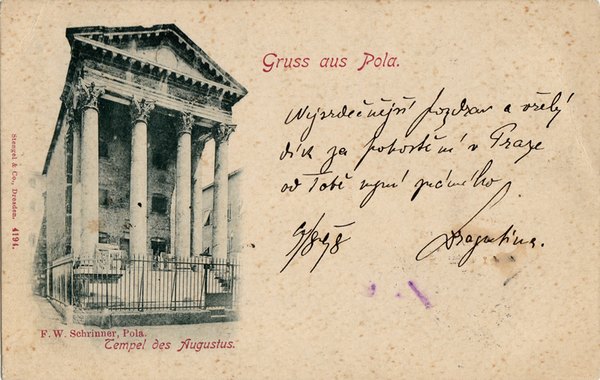 Gruss aus Pola.
Nejsrdečnější pozdrav a vřelý
dík za pohostění v Praze
od Tobě
9/8 98
Stengel & Co., Dresden. 4194.
F. W. Schrinner, Pola.
Tempel des Augustus.